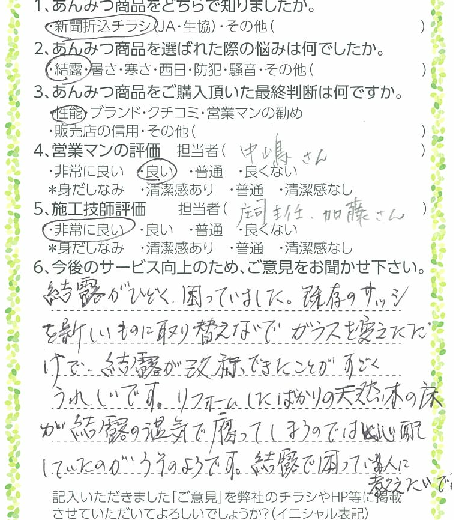 1、あんみつ商品をどちらで知りましたか。
・新聞折込チラシ(JA・生協)・その他( )
2、あんみつ商品を選ばれた際の悩みは何でしたか。
・結露・暑さ・寒さ・西日・防犯・騒音・その他( )
3、あんみつ商品をご購入頂いた最終判断は何ですか。
・性能・ブランド・クチコミ・営業マンの勧め
・販売店の信用・その他( )
4、営業マンの評価 担当者( 中嶋さん )
・非常に良い ・良い ・普通 ・良くない
*身だしなみ ・清潔感あり ・普通 ・清潔感なし
5、施工技師評価 担当者( 主任、加藤さん )
・非常に良い ・良い ・普通 ・良くない
*身だしなみ ・清潔感あり ・普通 ・清潔感なし
6、今後のサービス向上のため、ご意見をお聞かせ下さい。
結露がひどく、困っていました。既存のサッシ
を新しいものに取り替えないで ガラスを変えただ
けで、結露が改善できたことがすごく
うれしいです。リフォームしたばかりの天然木の床
が結露の湿気で腐ってしまうのでは心配
していたのがうそのようです。結露で困っている人に
教えたいで
記入いただきました「ご意見」を弊社のチラシやHP等に掲載
させていただいてよろしいでしょうか?(イニシャル表記)